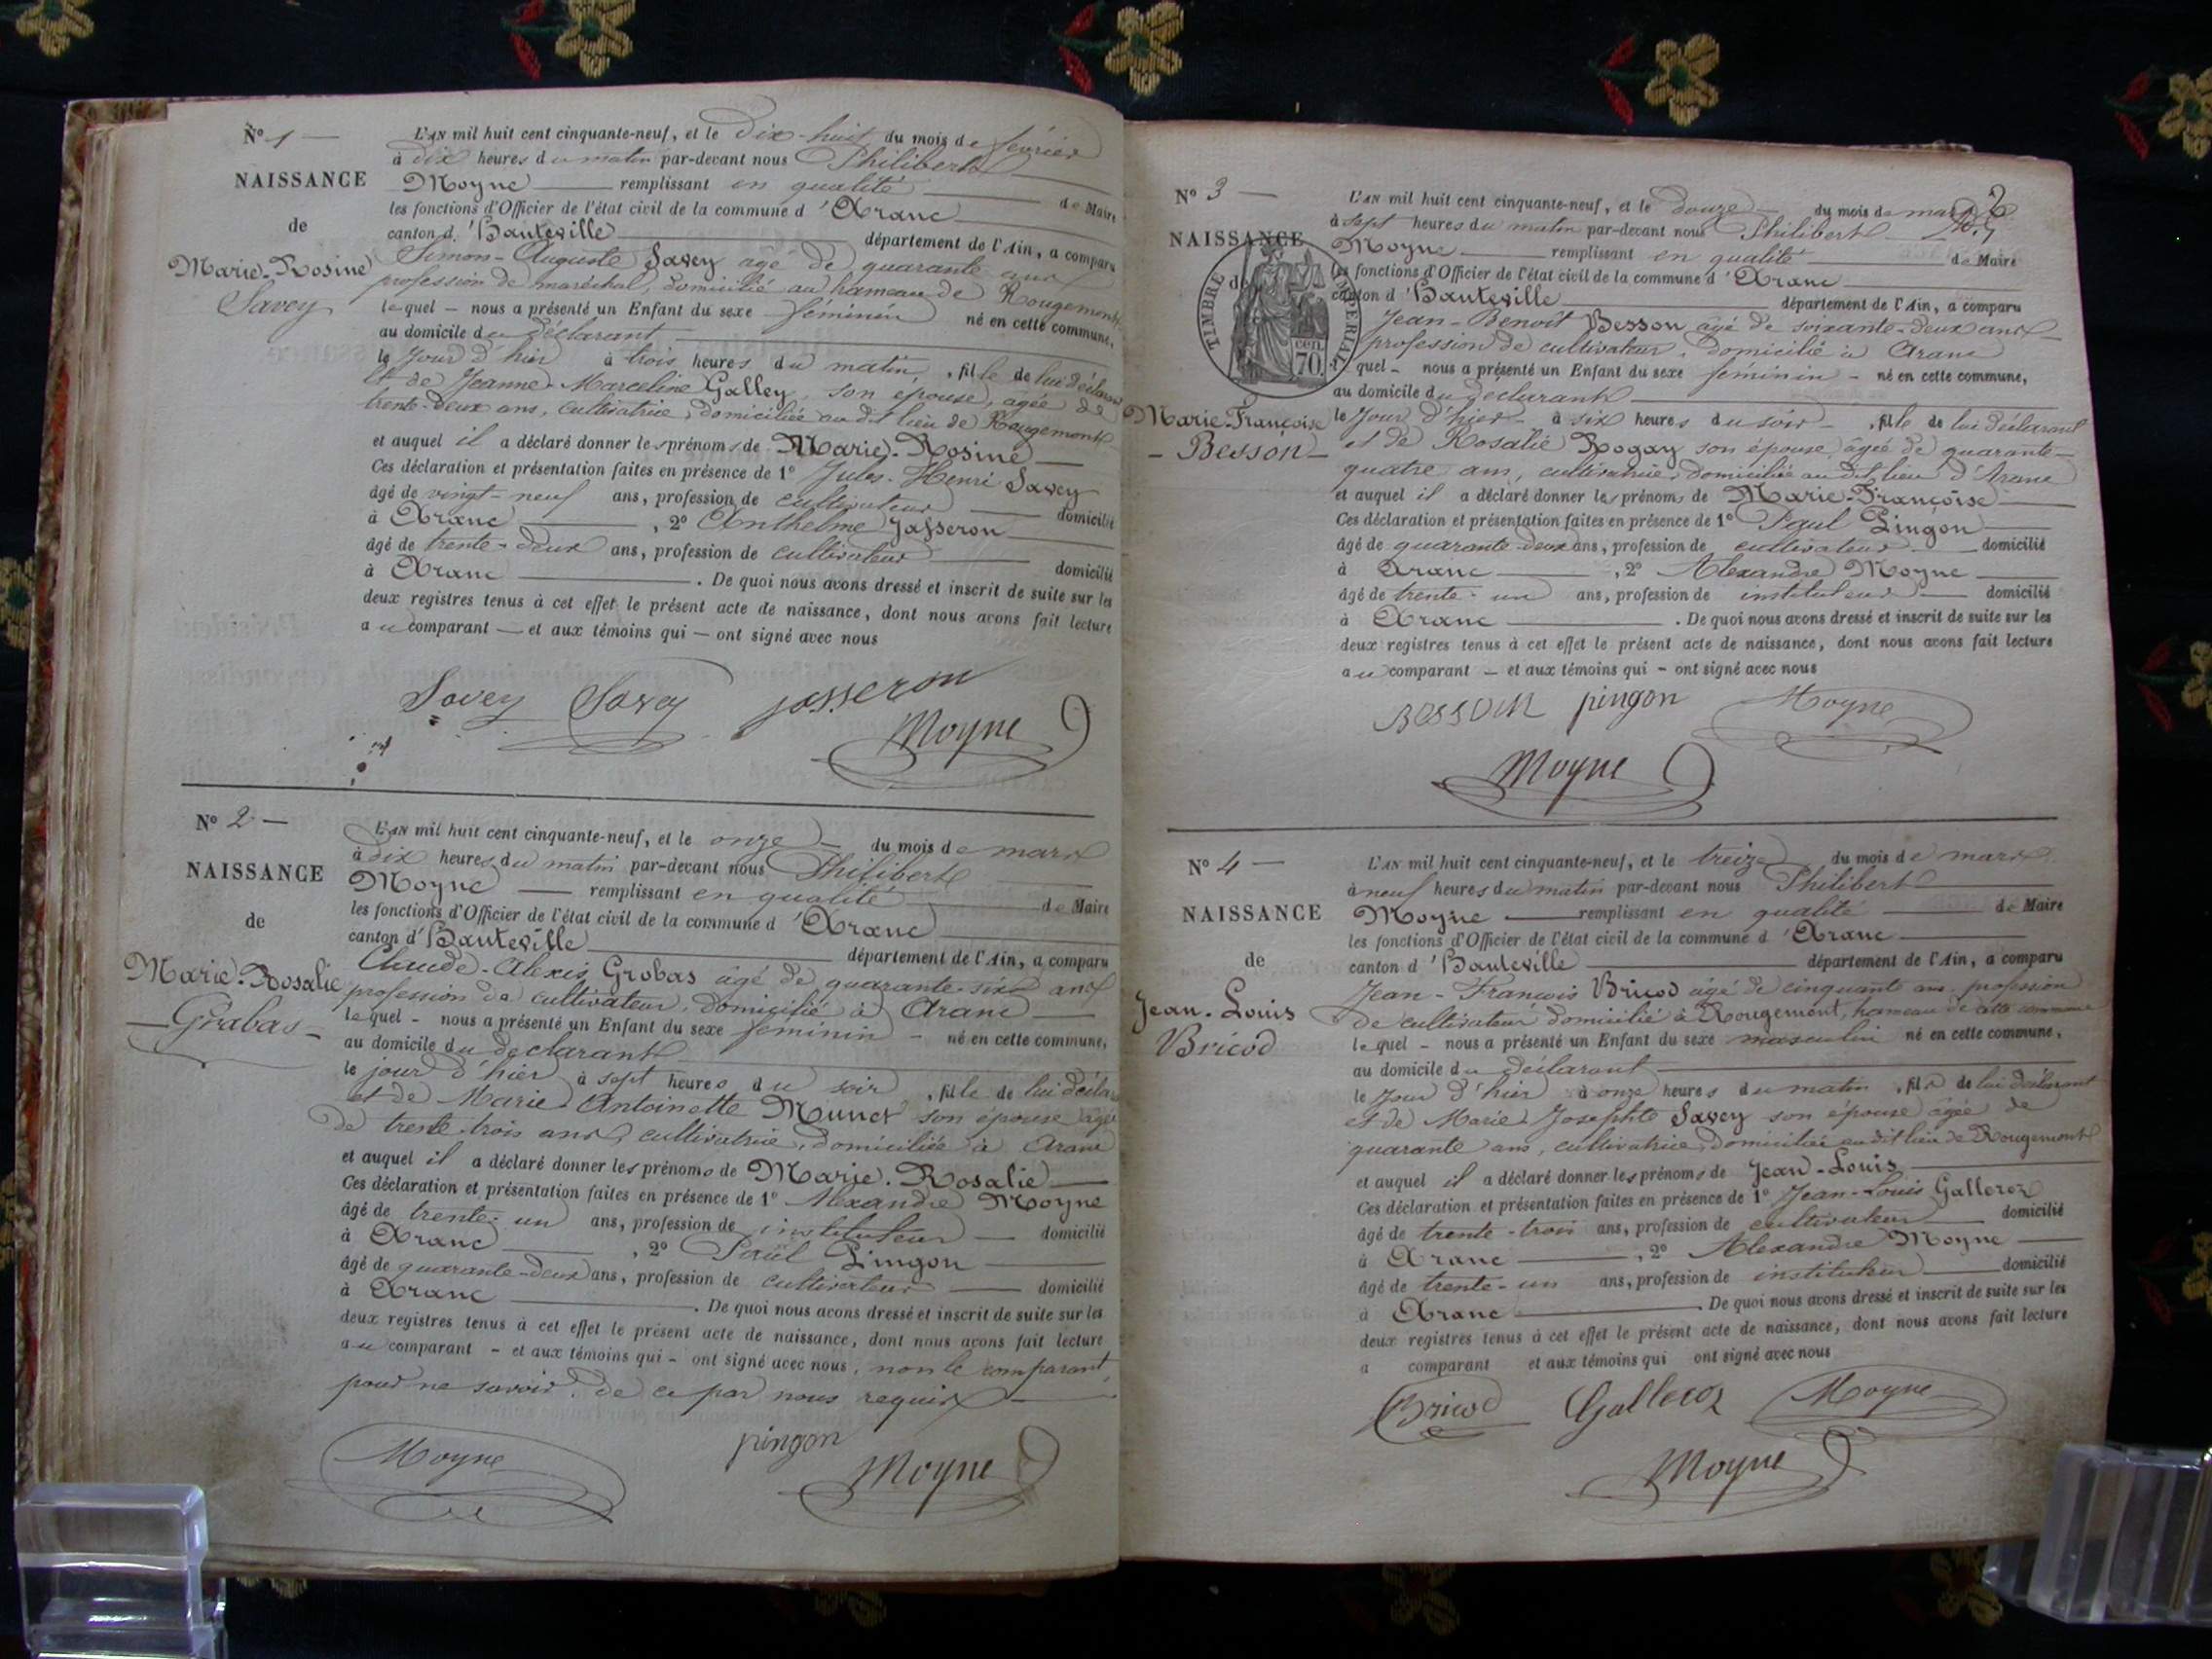 N° 1
NAISSANCE
de
Marie-Rosine
Savey
L'AN mil huit cent cinquante-neuf, et le dix-huit du mois de février
à dix heures du matin par-devant nous Philibert
Moyne remplissant en qualité de Maire
les fonctions d'Officier de l'état civil de la commune d'Aranc
canton d'Hauteville département de l'Ain, a comparu
Simon-Auguste Savey âgé de quarante ans
profession de maréchal, domicilié au hameau de Rougemont
lequel — nous a présenté un Enfant du sexe féminin né en cette commune,
au domicile du déclarant
le jour d'hier à trois heures du matin, fille de lui déclarant
et de Jeanne-Marceline Galley, son épouse, agée de
trente-deux ans, cultivatrice, domiciliée au dit lieu de Rougemont
et auquel il a déclaré donner les prénoms de Marie-Rosine
Ces déclaration et présentation faites en présence de 1° Jules-Henri Savey
âgé de vingt-neuf ans, profession de cultivateur domicilié
à Aranc, 2° Anthelme Josseron
âgé de trente-deux ans, profession de cultivateur domicilié
à Aranc. De quoi nous avons dressé et inscrit de suite sur les
deux registres tenus à cet effet le présent acte de naissance, dont nous avons fait lecture
au comparant — et aux témoins qui — ont signé avec nous
Savey Savey josseron
Moyne
N° 2
NAISSANCE
de
Marie-Rosalie
Grabas
L'AN mil huit cent cinquante-neuf, et le onze du mois de mars
à dix heures du matin par-devant nous Philibert
Moyne remplissant en qualité de Maire
les fonctions d'Officier de l'état civil de la commune d'Aranc
canton d'Hauteville département de l'Ain, a comparu
Claude-Alexis Grobas âgé de quarante-six ans
profession de cultivateur, domicilié à Aranc
lequel - nous a présenté un Enfant du sexe féminin - né en cette commune,
au domicile du déclarant
le jour d'hier à sept heures du soir, fille de lui déclarant
et de Marie Antoinette Munet son épouse agée
de trente-trois ans, cultivatrice, domiciliée à Aranc
et auquel il a déclaré donner les prénoms de Marie-Rosalie
Ces déclaration et présentation faites en présence de 1° Alexandre Moyne
âgé de trente-un ans, profession de instituteur domicilié
à Aranc, 2° Paul Pingon
âgé de quarante-deux ans, profession de cultivateur domicilié
à Aranc. De quoi nous avons dressé et inscrit de suite sur les
deux registres tenus à cet effet le présent acte de naissance, dont nous avons fait lecture
au comparant - et aux témoins qui - ont signé avec nous, non le comparant,
pour ne savoir, de ce par nous requis
Moyne pingon Moyne
2
N° 3
NAISSANCE
de
TIMBRE IMPERIAL
70 cen
Marie-Françoise
Besson
L'AN mil huit cent cinquante-neuf, et le douze du mois de mars
à sept heures du matin par-devant nous Philibert
Moyne remplissant en qualité de Maire
les fonctions d'Officier de l'état civil de la commune d'Aranc
canton d'Hauteville département de l'Ain, a comparu
Jean-Benoît Besson âgé de soixante-deux ans
profession de cultivateur, domicilié à Aranc
lequel - nous a présenté un Enfant du sexe féminin - né en cette commune,
au domicile du déclarant
le jour d'hier à six heures du soir, fille de lui déclarant
et de Rosalie Rogay son épouse, âgée de quarante-
quatre ans, cultivatrice, domiciliée au dit lieu d'Aranc
et auquel il a déclaré donner les prénoms de Marie-Françoise
Ces déclaration et présentation faites en présence de 1° Paul Pingon
âgé de quarante-deux ans, profession de cultivateur domicilié
à Aranc, 2° Alexandre Moyne
âgé de trente-un ans, profession de instituteur domicilié
à Aranc. De quoi nous avons dressé et inscrit de suite sur les
deux registres tenus à cet effet le présent acte de naissance, dont nous avons fait lecture
au comparant - et aux témoins qui - ont signé avec nous
Besson pingon Moyne
Moyne
N° 4
NAISSANCE
de
Jean-Louis
Bricod
L'AN mil huit cent cinquante-neuf, et le treize du mois de mars
à neuf heures du matin par-devant nous Philibert
Moyne remplissant en qualité de Maire
les fonctions d'Officier de l'état civil de la commune d'Aranc
canton d'Hauteville département de l'Ain, a comparu
Jean-François Bricod âgé de cinquante ans, profession
de cultivateur domicilié à Rougemont, hameau de cette commune
lequel - nous a présenté un Enfant du sexe masculin né en cette commune,
au domicile du déclarant
le jour d'hier à onze heures du matin, fils de lui déclarant
et de Marie Josephte Savey son épouse âgée de
quarante ans, cultivatrice, domiciliée au dit lieu de Rougemont
et auquel il a déclaré donner les prénoms de Jean-Louis
Ces déclaration et présentation faites en présence de 1° Jean-Louis Galleroz
âgé de trente-trois ans, profession de cultivateur domicilié
à Aranc, 2° Alexandre Moyne
âgé de trente-un ans, profession de instituteur domicilié
à Aranc. De quoi nous avons dressé et inscrit de suite sur les
deux registres tenus à cet effet le présent acte de naissance, dont nous avons fait lecture
a comparant et aux témoins qui ont signé avec nous
Bricod Galleroz Moyne
Moyne